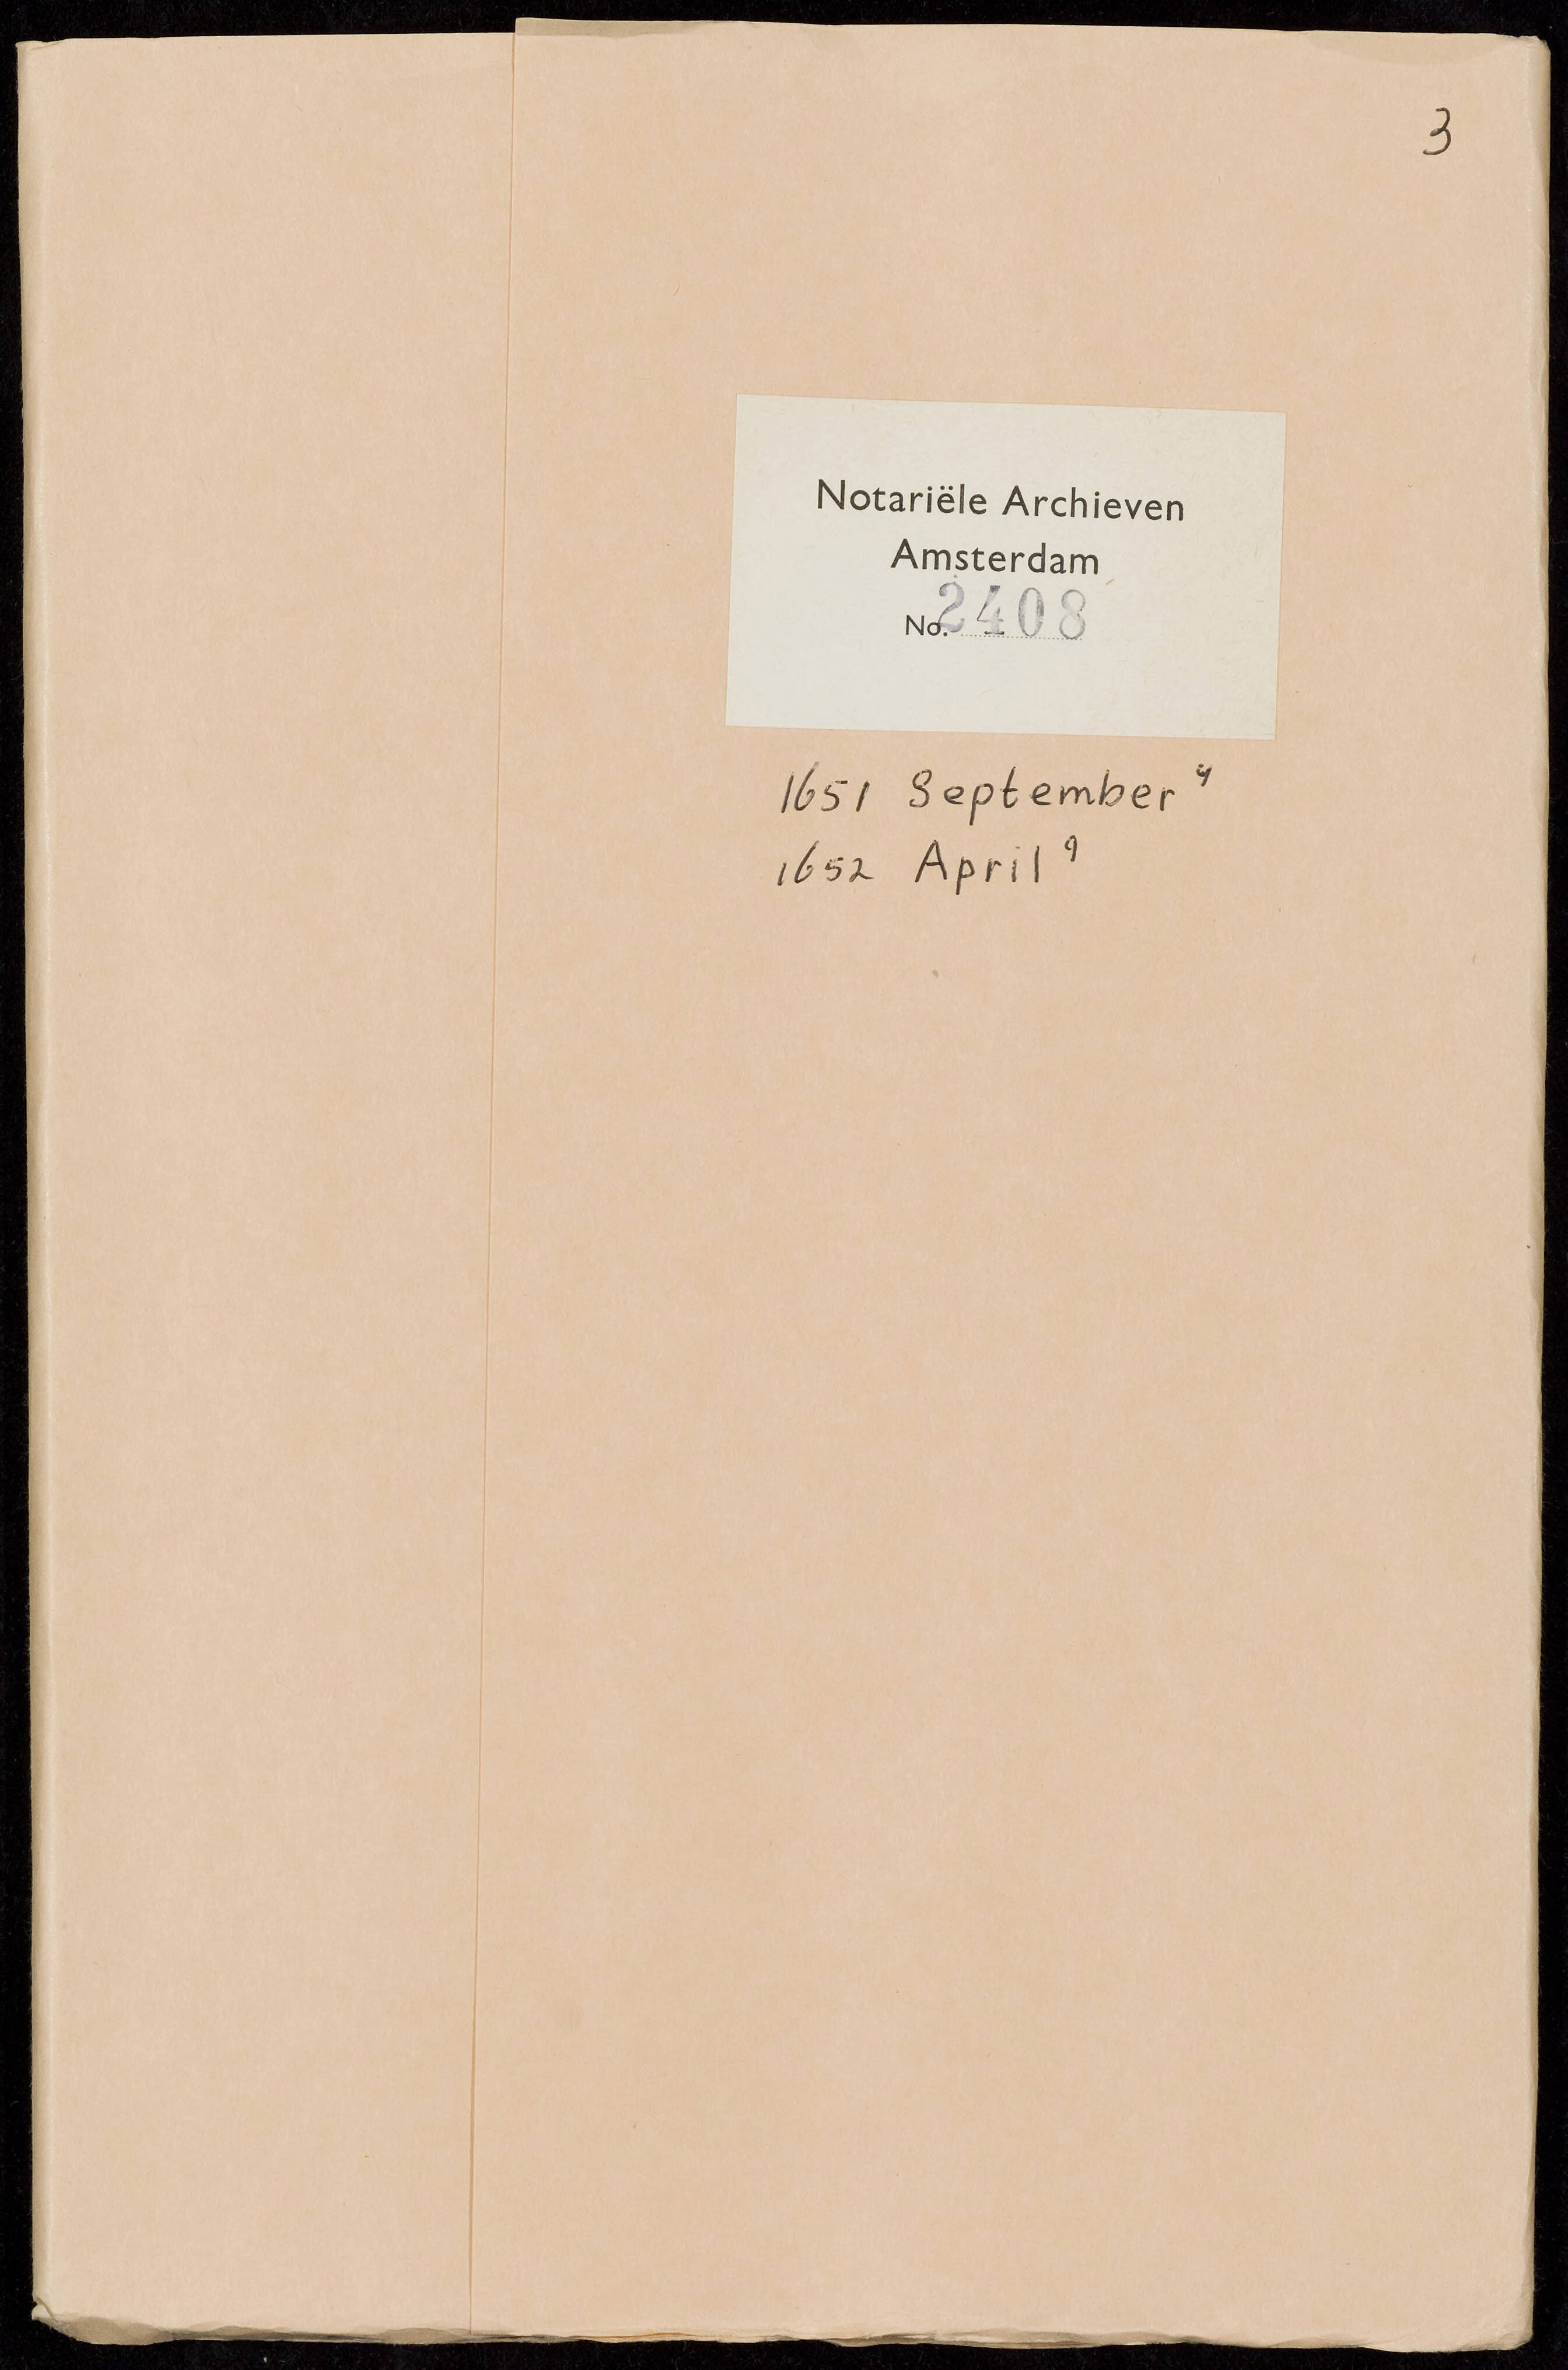 3
Notariële Archieven
Amsterdam
No. 2408
1651 September 4
1652 April 9